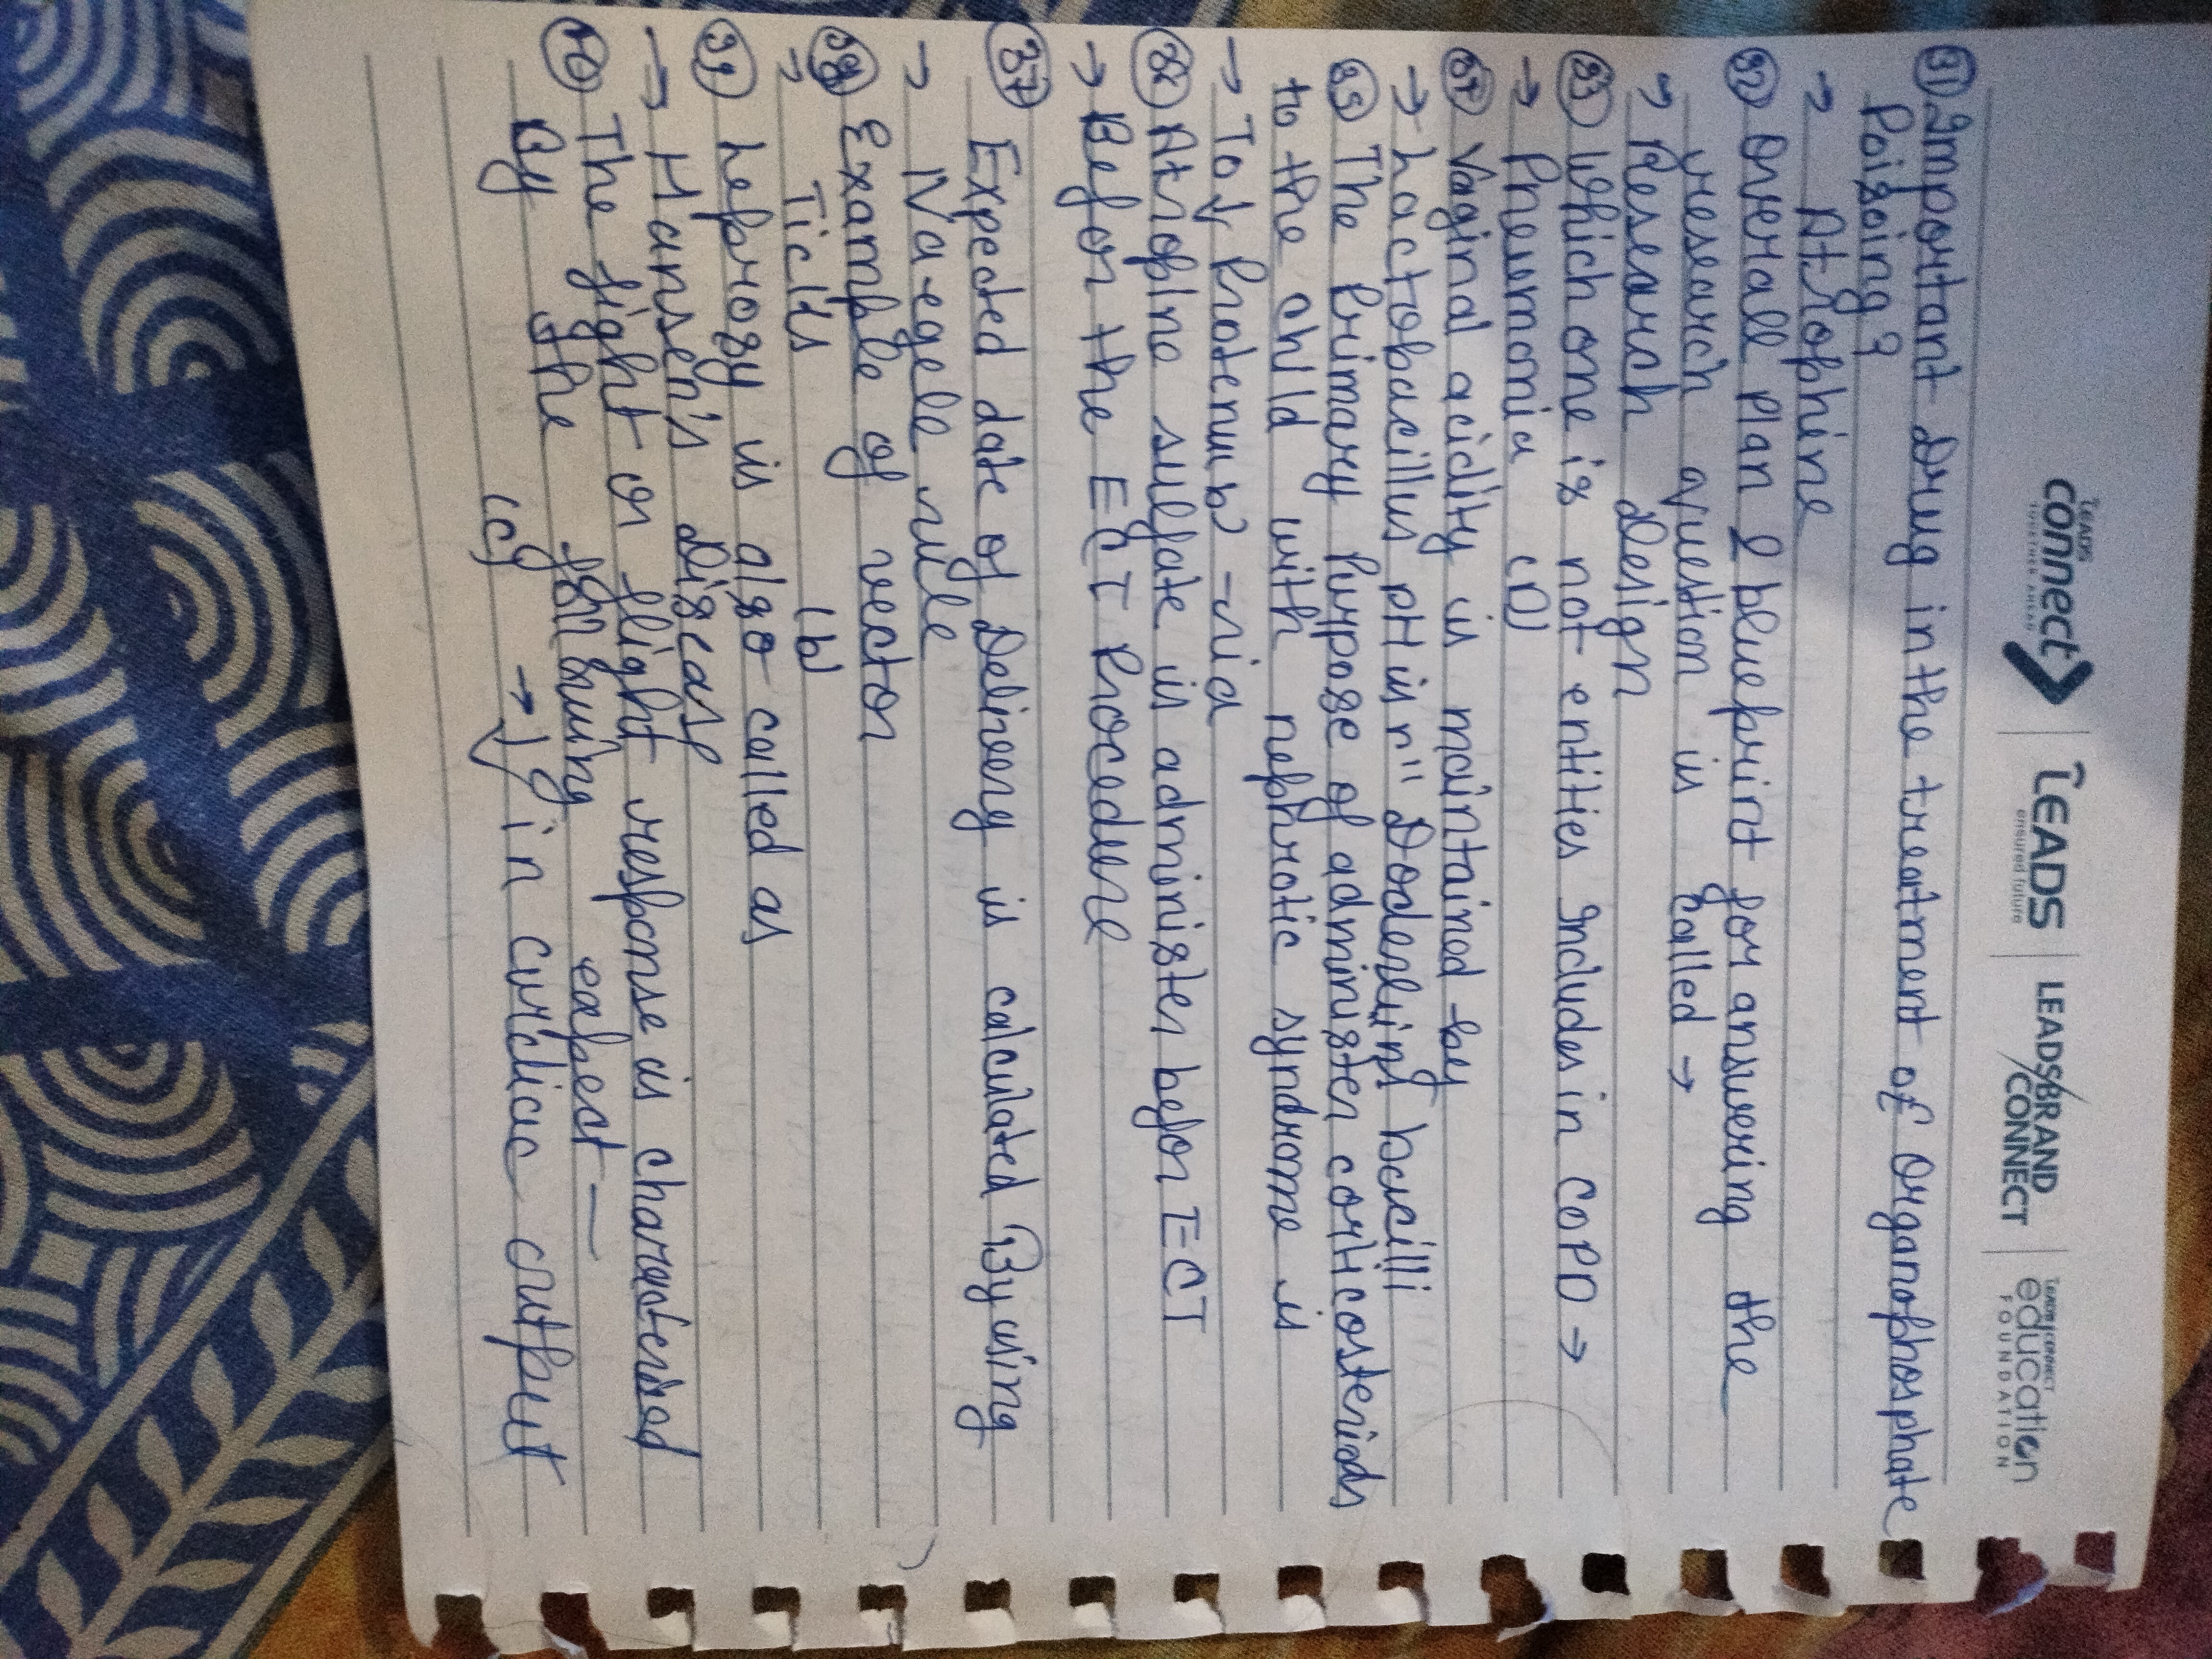 LEADS connect TOGETHER AHEAD | LEADS ensured future | LEADS/BRAND CONNECT | LEADS CONNECT education FOUNDATION
31 Important Drug in the treatment of Organophosphate
Poisoing?
→ Atrophine
32 Overall Plan & blueprint for answering the
research question is called →
→ Research design
33 Which one is not entities includes in COPD →
→ Pneumonia (D)
34 Vaginal acidity is maintained by
→ Lactobacillus pH is n" Doderlins bacilli
35 The Primary Purpose of administer corticosteriods
to the child with nephrotic syndrome is
→ To ↓ Protenub -ria
36 Atropine sulfate is administer befor ECT
→ Befor the ECT Procedure
37 Expected date of Delivery is calculated By using
→ Naegele rule
38 Example of vector
→ Ticks (b)
39 Leprosy is also called as
→ Hansen's Diseas
40 The fight or flight response is characterised
By the following expect —
(c) → ↓ in cardiac output